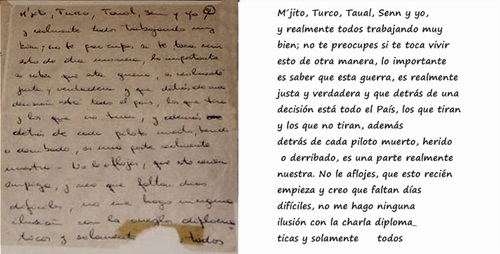 M'jito, Turco, Taual, Senn y yo, 2
y realmente todos Trabajando muy
bien; no te preocupes si te toca vivir
esto de otra manera, lo importante
es saber que esta guerra, es realmente
justa y verdadera y que detrás de una
decisión está todo el país, los que tiran
y los que no tiran, y además
detrás de cada piloto muerto, herido
o derribado, es una parte realmente
nuestra. No le aflojes, que esto recién
empieza, y creo que faltan días
difíciles, no me hago ninguna
ilusión con la charla diploma
ticas y solamente todos
M´jito, Turco, Taual, Senn y yo,
y realmente todos trabajando muy
bien; no te preocupes si te toca vivir
esto de otra manera, lo importante
es saber que esta guerra, es realmente
justa y verdadera y que detrás de una
decisión está todo el País, los que tiran
y los que no tiran, además
detrás de cada piloto muerto, herido
o derribado, es una parte realmente
nuestra. No le aflojes, que esto recién
empieza y creo que faltan días
difíciles, no me hago ninguna
ilusión con la charla diploma_
ticas y solamente todos